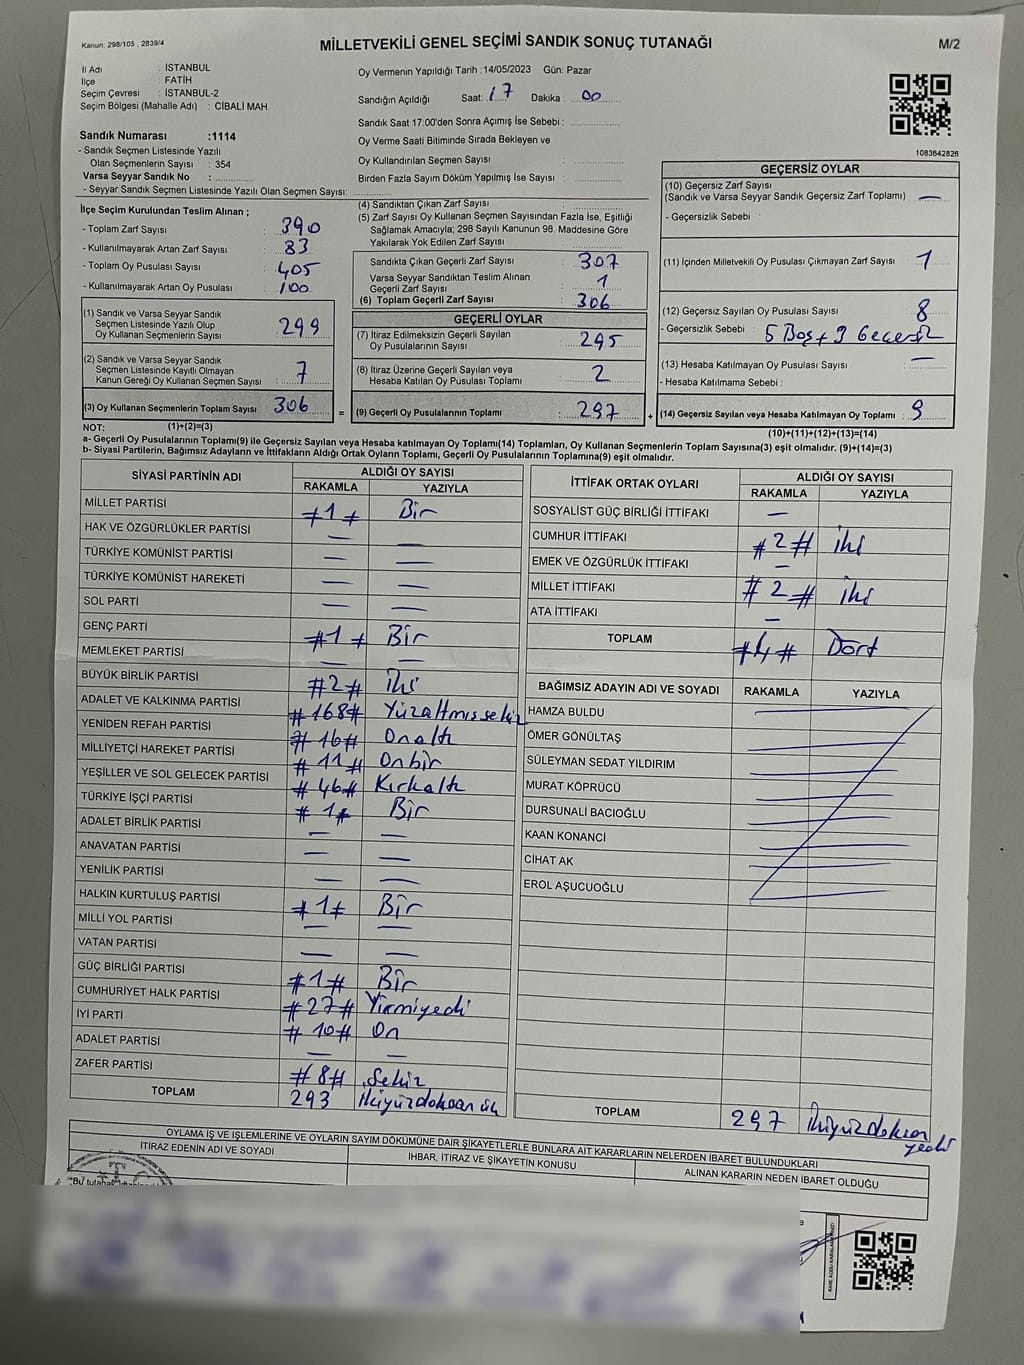 Kanun: 298/105 , 2839/4
MİLLETVEKİLİ GENEL SEÇİMİ SANDIK SONUÇ TUTANAĞI
M/2
İl Adı : İSTANBUL
İlçe : FATİH
Seçim Çevresi : İSTANBUL-2
Seçim Bölgesi (Mahalle Adı) : CİBALİ MAH.
Sandık Numarası :1114
- Sandık Seçmen Listesinde Yazılı
Olan Seçmenlerin Sayısı : 354
Varsa Seyyar Sandık No :
- Seyyar Sandık Seçmen Listesinde Yazılı Olan Seçmen Sayısı:
Oy Vermenin Yapıldığı Tarih :14/05/2023 Gün: Pazar
Sandığın Açıldığı Saat: 17 Dakika : 00
Sandık Saat 17:00'den Sonra Açımış İse Sebebi :
Oy Verme Saati Bitiminde Sırada Bekleyen ve
Oy Kullandırılan Seçmen Sayısı :
Birden Fazla Sayım Döküm Yapılmış İse Sayısı :
1083642826
İlçe Seçim Kurulundan Teslim Alınan ;
- Toplam Zarf Sayısı : 390
- Kullanılmayarak Artan Zarf Sayısı : 83
- Toplam Oy Pusulası Sayısı : 405
- Kullanılmayarak Artan Oy Pusulası : 100
(1) Sandık ve Varsa Seyyar Sandık
Seçmen Listesinde Yazılı Olup
Oy Kullanan Seçmenlerin Sayısı : 299
(2) Sandık ve Varsa Seyyar Sandık
Seçmen Listesinde Kayıtlı Olmayan
Kanun Gereği Oy Kullanan Seçmen Sayısı : 7
(3) Oy Kullanan Seçmenlerin Toplam Sayısı 306
(4) Sandıktan Çıkan Zarf Sayısı :
(5) Zarf Sayısı Oy Kullanan Seçmen Sayısından Fazla İse, Eşitliği
Sağlamak Amacıyla; 298 Sayılı Kanunun 98. Maddesine Göre
Yakılarak Yok Edilen Zarf Sayısı :
Sandıkta Çıkan Geçerli Zarf Sayısı : 307
Varsa Seyyar Sandıktan Teslim Alınan
Geçerli Zarf Sayısı : 1
(6) Toplam Geçerli Zarf Sayısı : 306
GEÇERLİ OYLAR
(7) İtiraz Edilmeksizin Geçerli Sayılan
Oy Pusulalarının Sayısı : 295
(8) İtiraz Üzerine Geçerli Sayılan veya
Hesaba Katılan Oy Pusulası Toplamı : 2
= (9) Geçerli Oy Pusulalarının Toplamı : 297
GEÇERSİZ OYLAR
(10) Geçersiz Zarf Sayısı
(Sandık ve Varsa Seyyar Sandık Geçersiz Zarf Toplamı) : —
- Geçersizlik Sebebi :
(11) İçinden Milletvekili Oy Pusulası Çıkmayan Zarf Sayısı : 1
(12) Geçersiz Sayılan Oy Pusulası Sayısı : 8
- Geçersizlik Sebebi : 5 Boş +
(13) Hesaba Katılmayan Oy Pusulası Sayısı : —
- Hesaba Katılmama Sebebi :
+ (14) Geçersiz Sayılan veya Hesaba Katılmayan Oy Toplamı : 9
NOT: (1)+(2)=(3)
(10)+(11)+(12)+(13)=(14)
a- Geçerli Oy Pusulalarının Toplamı(9) ile Geçersiz Sayılan veya Hesaba katılmayan Oy Toplamı(14) Toplamları, Oy Kullanan Seçmenlerin Toplam Sayısına(3) eşit olmalıdır. (9)+(14)=(3)
b- Siyasi Partilerin, Bağımsız Adayların ve İttifakların Aldığı Ortak Oyların Toplamı, Geçerli Oy Pusulalarının Toplamına(9) eşit olmalıdır.
SİYASİ PARTİNİN ADI ALDIĞI OY SAYISI
RAKAMLA YAZIYLA
MİLLET PARTİSİ #1# Bir
HAK VE ÖZGÜRLÜKLER PARTİSİ — —
TÜRKİYE KOMÜNİST PARTİSİ — —
TÜRKİYE KOMÜNİST HAREKETİ — —
SOL PARTİ — —
GENÇ PARTİ #1# Bir
MEMLEKET PARTİSİ — —
BÜYÜK BİRLİK PARTİSİ #2# İki
ADALET VE KALKINMA PARTİSİ #168# Yüzaltmışsekiz
YENİDEN REFAH PARTİSİ #16# Onaltı
MİLLİYETÇİ HAREKET PARTİSİ #11# Onbir
YEŞİLLER VE SOL GELECEK PARTİSİ #46# Kırkaltı
TÜRKİYE İŞÇİ PARTİSİ #1# Bir
ADALET BİRLİK PARTİSİ — —
ANAVATAN PARTİSİ — —
YENİLİK PARTİSİ — —
HALKIN KURTULUŞ PARTİSİ #1# Bir
MİLLİ YOL PARTİSİ — —
VATAN PARTİSİ — —
GÜÇ BİRLİĞİ PARTİSİ #1# Bir
CUMHURİYET HALK PARTİSİ #27# Yirmiyedi
İYİ PARTİ #10# On
ADALET PARTİSİ — —
ZAFER PARTİSİ #8# Sekiz
TOPLAM 293 İkiyüzdoksan üç
İTTİFAK ORTAK OYLARI ALDIĞI OY SAYISI
RAKAMLA YAZIYLA
SOSYALİST GÜÇ BİRLİĞİ İTTİFAKI —
CUMHUR İTTİFAKI #2# iki
EMEK VE ÖZGÜRLÜK İTTİFAKI —
MİLLET İTTİFAKI #2# iki
ATA İTTİFAKI —
TOPLAM #4# Dört
BAĞIMSIZ ADAYIN ADI VE SOYADI RAKAMLA YAZIYLA
HAMZA BULDU
ÖMER GÖNÜLTAŞ
SÜLEYMAN SEDAT YILDIRIM
MURAT KÖPRÜCÜ
DURSUNALİ BACIOĞLU
KAAN KONANCİ
CİHAT AK
EROL AŞUCUOĞLU
TOPLAM 297 İkiyüzdoksan
yedi
OYLAMA İŞ VE İŞLEMLERİNE VE OYLARIN SAYIM DÖKÜMÜNE DAİR ŞİKAYETLERLE BUNLARA AİT KARARLARIN NELERDEN İBARET BULUNDUKLARI
İTİRAZ EDENİN ADI VE SOYADI İHBAR, İTİRAZ VE ŞİKAYETİN KONUSU ALINAN KARARIN NEDEN İBARET OLDUĞU